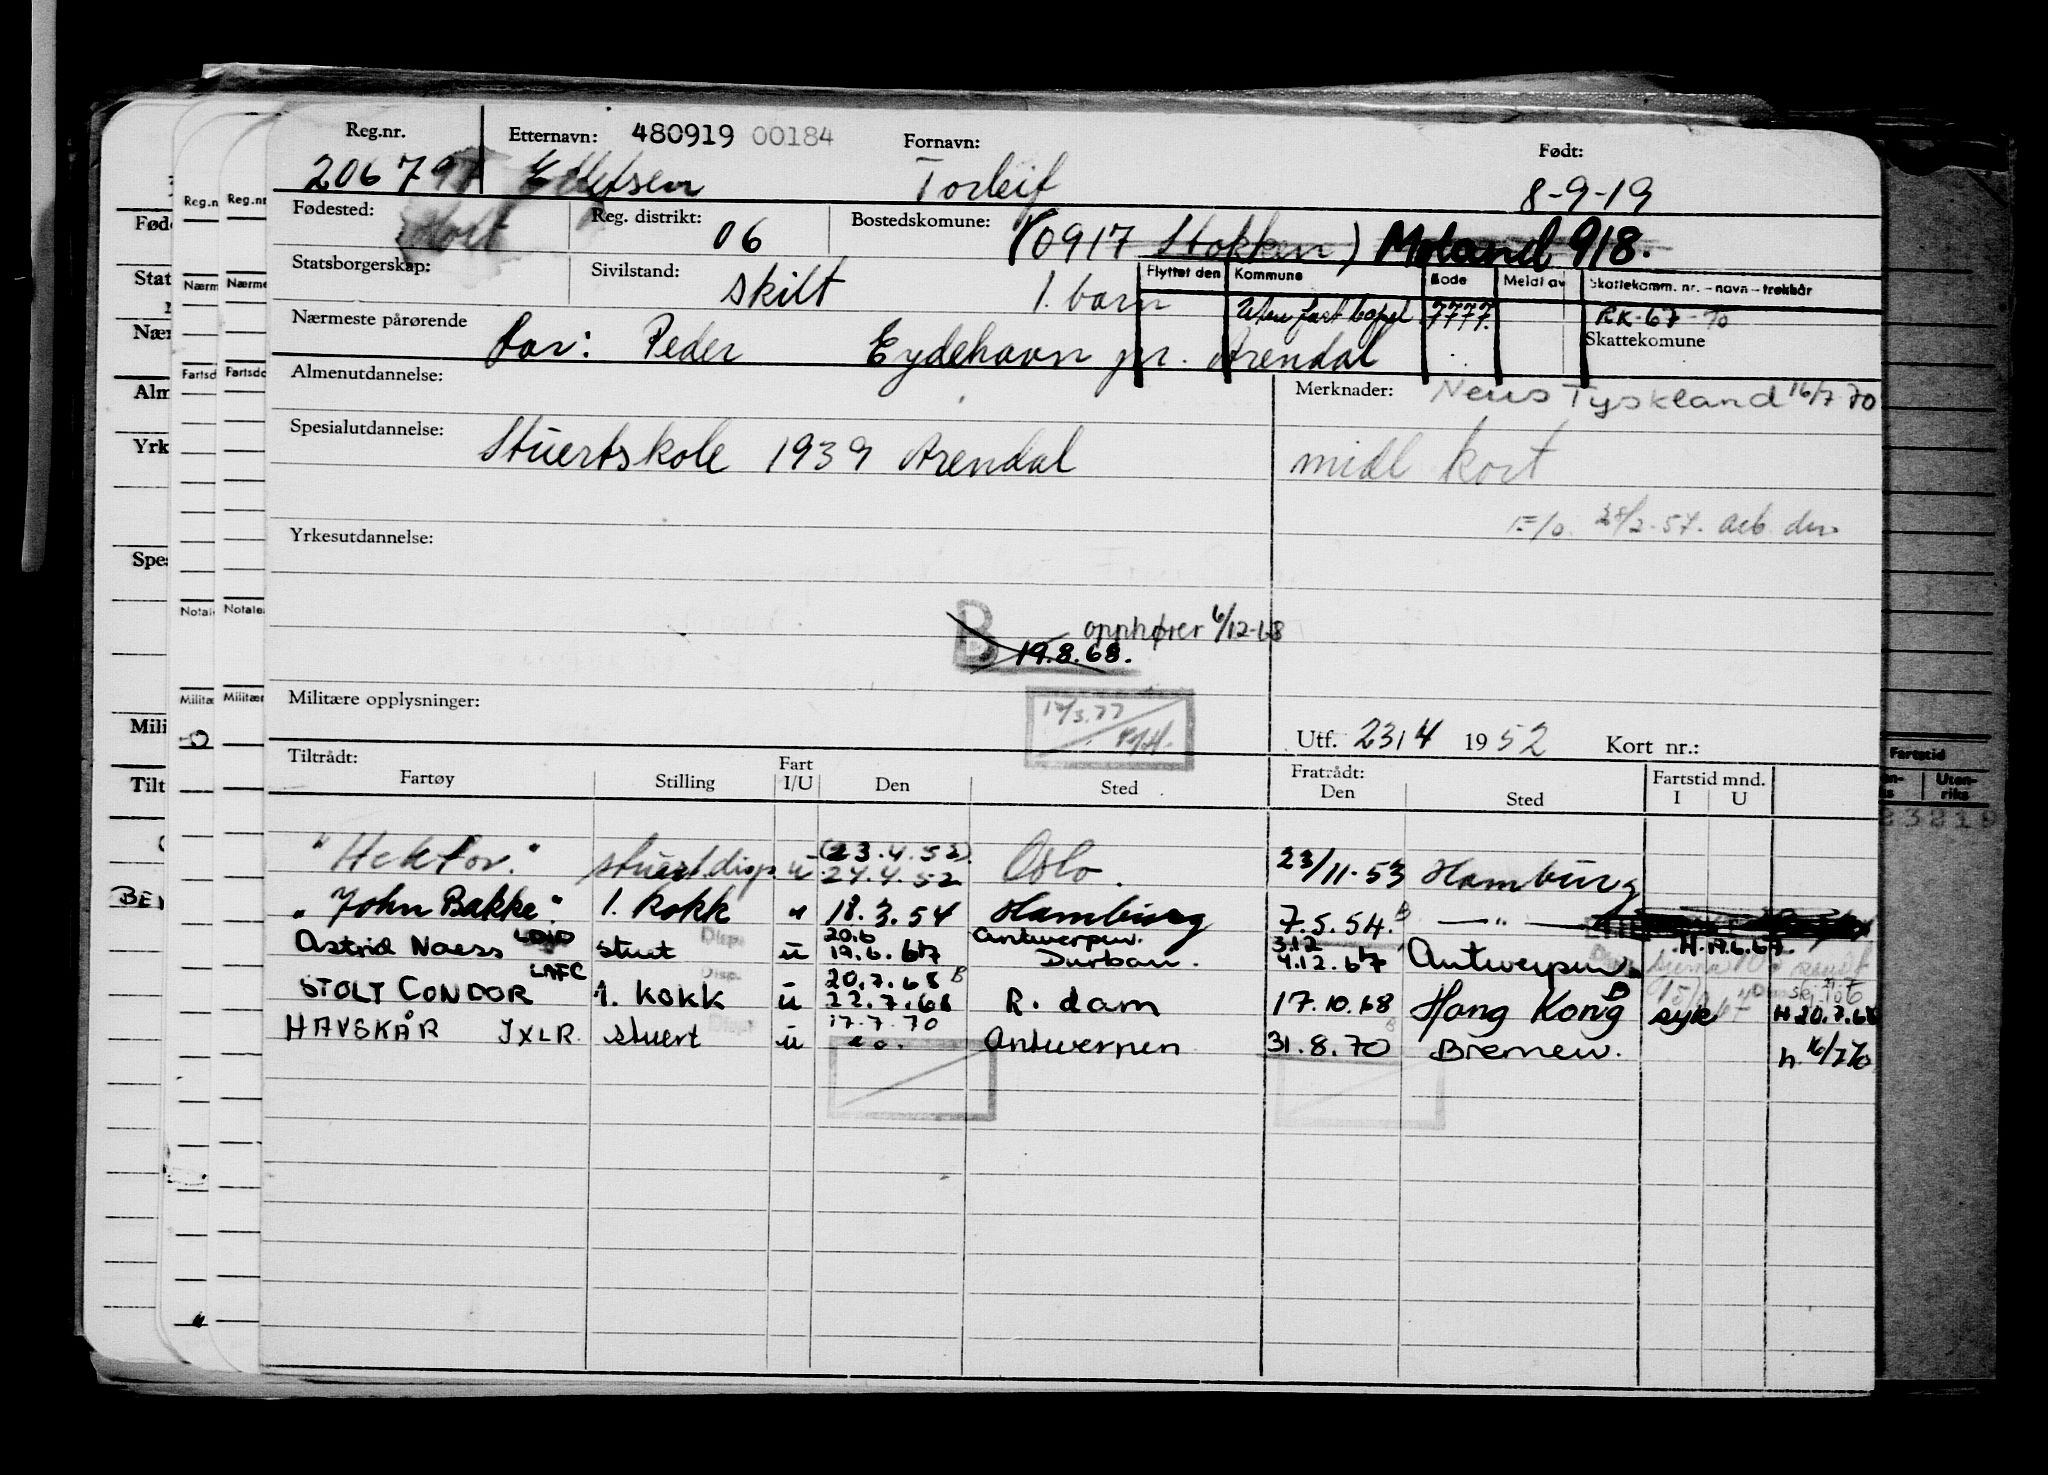 Reg.nr. Etternavn: 480919 00184 Fornavn: Født:
206797 Ellefsen Torleif 8-9-19
Fødested: Reg. distrikt: 06 Bostedskomune: (0917 Stokken) Moland 918.
Statsborgerskap: Sivilstand: skilt 1. barn Flyttet den Kommune Kode Meldt av Skattekomm. nr. – navn – trekkår
Uten fast bopel 7777 RK-67-70
Nærmeste pårørende Far: Peder Eydehavn pr. Arendal Skattekomune
Almenutdannelse: Merknader: Neus Tyskland 16/7 70
Spesialutdannelse: Stuertskole 1939 Arendal midl kort
28/2-57.
Yrkesutdannelse:
B opphører 6/12-68
19.8.68.
Militære opplysninger: 17/3.77
Utf. 23/4 1952 Kort nr.:
Tiltrådt: Fart Fratrådt: Fartstid mnd.
Fartøy Stilling I/U Den Sted Den Sted I U
"Hektor." stuert.disp. u (23.4.52) 24.4.52 Oslo. 23/11-53 Hamburg
"John Bakke." 1. kokk " 18.3.54 Hamburg 7.5.54. B — " —
Astrid Naess LDID stuert Disp. u 20.6 19.6.67 Antwerpen. Durban. 3.12 4.12.67 Antwerpen H.19.6.67.
STOLT CONDOR LAFC 1. KOKK Disp. u 20.7.68 B 22.7.68 R. dam 17.10.68 Hong Kong B syk H 20.7.68
HAVSKÅR JXLR. stuert Disp. u 17.7.70 Antwerpen 31.8.70 B Bremen. h. 16/7 70
Reg.n
Reg.nr
Nærm
Nærme
Fartsd
Fartsdo
Notal
Notate
Milita
Militær
Fød
Stat
Nær
Alm
Yrk
Spe
Mili
Tilt
BE
Fartstid
Uten-
riks